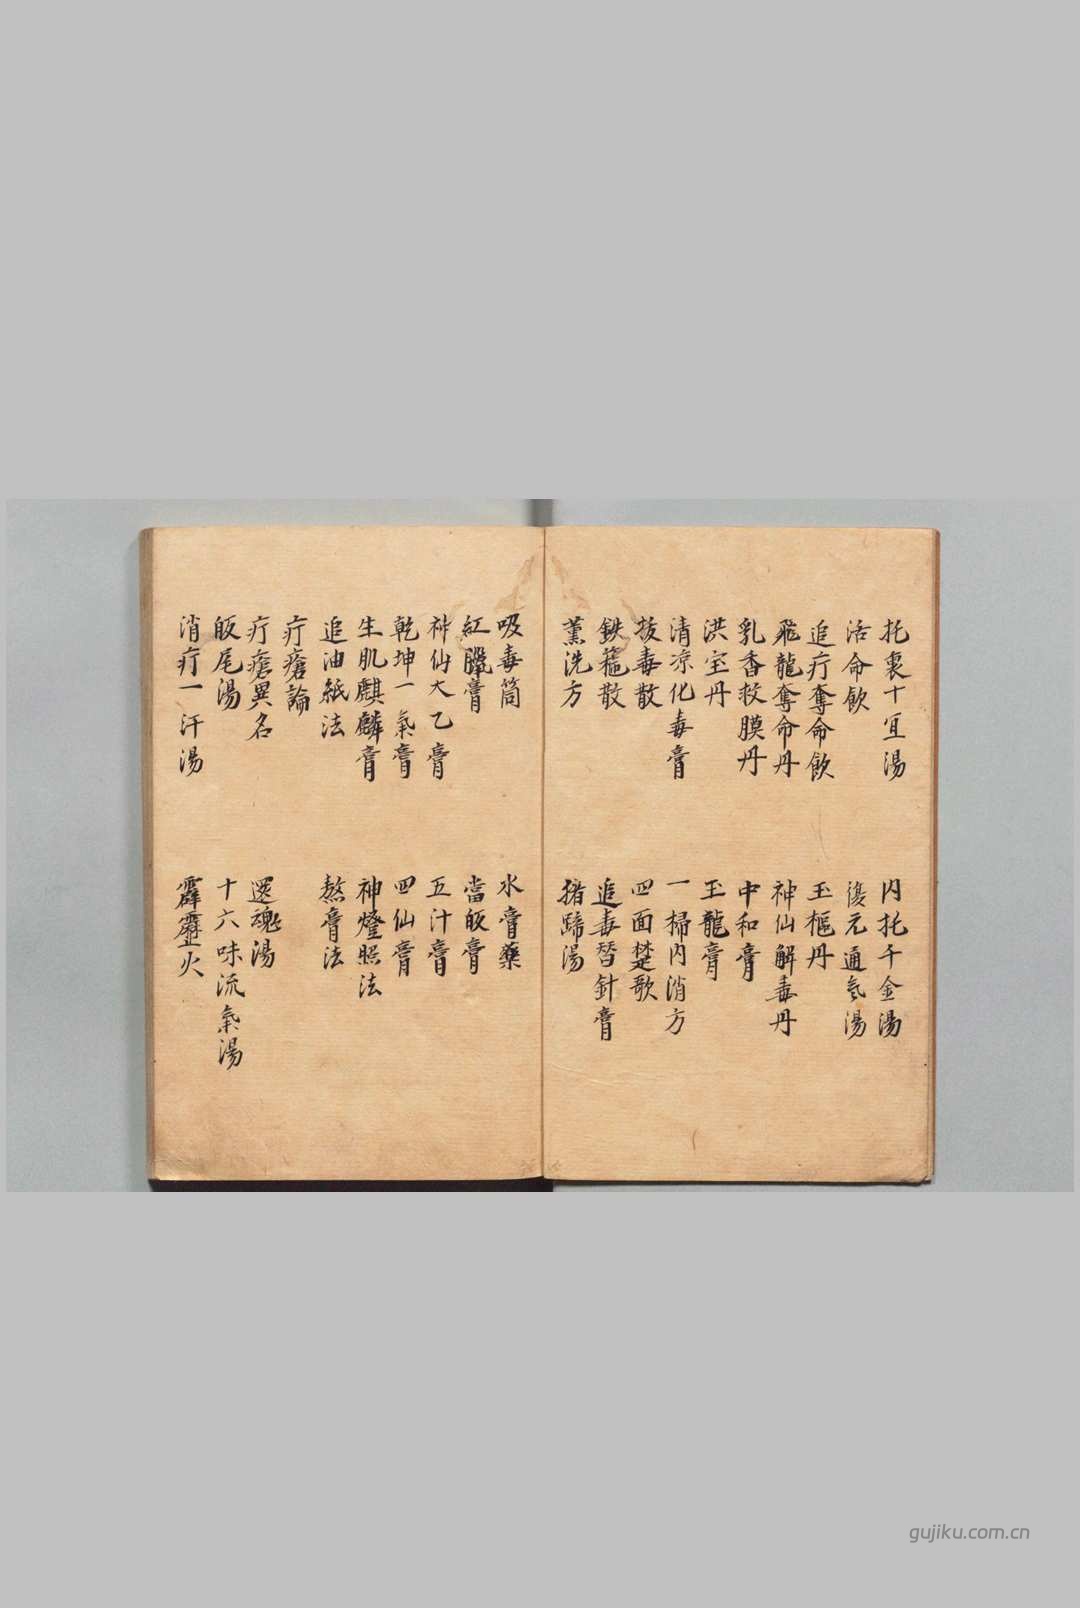 托裏十宣湯
內托千金湯
活命飲
復元通氣湯
追疔奪命飲
玉樞丹
飛龍奪命丹
神仙解毒丹
乳香救膜丹
中和膏
洪宝丹
玉龍膏
清凉化毒膏
一掃內消方
拔毒散
四面楚歌
鉄箍散
追毒替針膏
薰洗方
猪蹄湯
吸毒筒
水膏藥
紅臘膏
當皈膏
神仙太乙膏
五汁膏
乾坤一氣膏
四仙膏
生肌麒麟膏
神燈照法
追油紙法
熬膏法
疔瘡論
疔瘡異名
還魂湯
皈尾湯
十六味流氣湯
消疔一汗湯
霹靂火
gujiku.com.cn